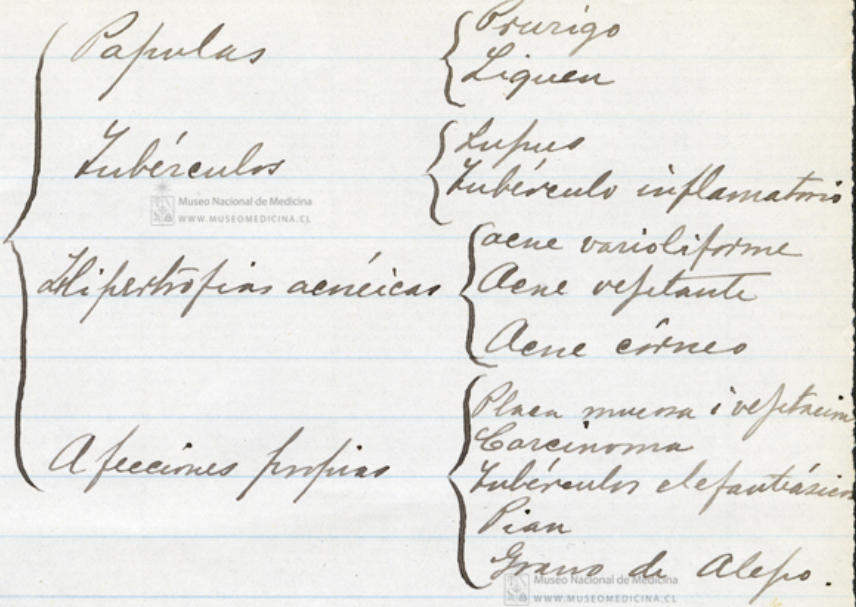 Pápulas
Prurigo
Liquen
Tubérculos
Lupus
Tubérculo inflamatorio
Museo Nacional de Medicina
WWW.MUSEOMEDICINA.CL
Hipertrófias acnéicas
acne varioliforme
Acne vejetante
Acne córneo
Afecciones propias
Placa mucosa i vejetacion
Carcinoma
Tubérculos elefantiásicos
Pian
Grano de Alepo.
Museo Nacional de Medicina
WWW.MUSEOMEDICINA.CL